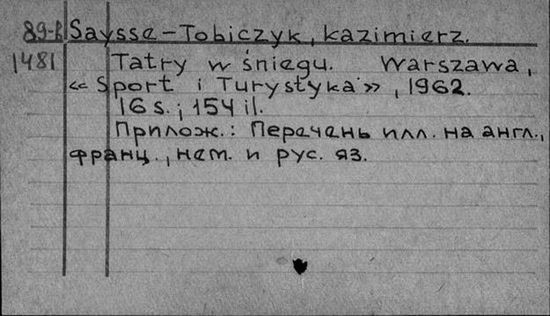 89-В Saysse-Tobiczyk, Kazimierz.
1481 Tatry w śniegu. Warszawa,
«Sport i Turystyka», 1962.
16 s.; 154 il.
Прилож.: Перечень илл. на англ.,
франц., нем. и рус. яз.